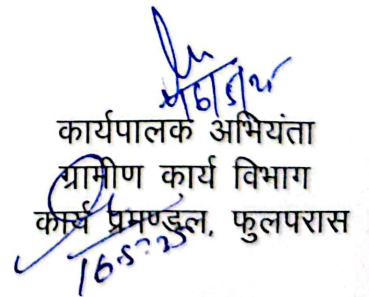 कार्यपालक अभियंता
ग्रामीण कार्य विभाग
कार्य प्रमण्डल, फुलपरास
16.5.25